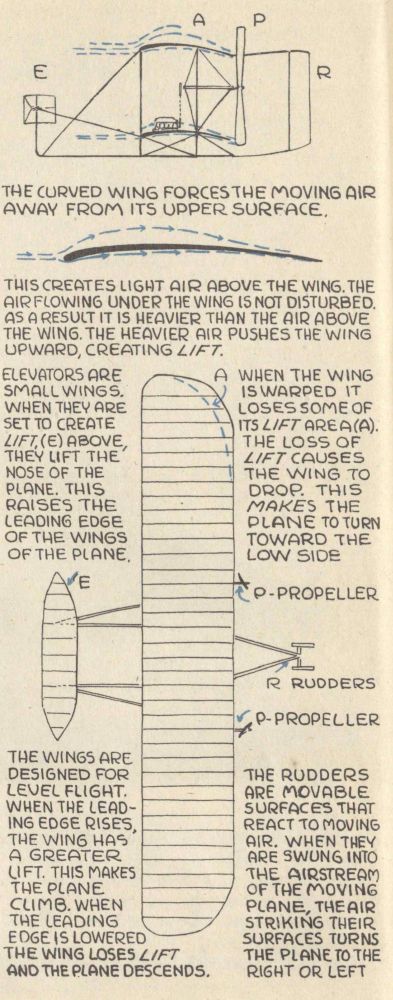 A P
E R
THE CURVED WING FORCES THE MOVING AIR
AWAY FROM ITS UPPER SURFACE.
THIS CREATES LIGHT AIR ABOVE THE WING. THE
AIR FLOWING UNDER THE WING IS NOT DISTURBED.
AS A RESULT IT IS HEAVIER THAN THE AIR ABOVE
THE WING. THE HEAVIER AIR PUSHES THE WING
UPWARD, CREATING LIFT.
ELEVATORS ARE
SMALL WINGS.
WHEN THEY ARE
SET TO CREATE
LIFT, (E) ABOVE,
THEY LIFT THE
NOSE OF THE
PLANE. THIS
RAISES THE
LEADING EDGE
OF THE WINGS
OF THE PLANE.
A
WHEN THE WING
IS WARPED IT
LOSES SOME OF
ITS LIFT AREA (A).
THE LOSS OF
LIFT CAUSES
THE WING TO
DROP. THIS
MAKES THE
PLANE TO TURN
TOWARD THE
LOW SIDE
E
P-PROPELLER
R RUDDERS
P-PROPELLER
THE WINGS ARE
DESIGNED FOR
LEVEL FLIGHT.
WHEN THE LEAD-
ING EDGE RISES,
THE WING HAS
A GREATER
LIFT. THIS MAKES
THE PLANE
CLIMB. WHEN
THE LEADING
EDGE IS LOWERED
THE WING LOSES LIFT
AND THE PLANE DESCENDS.
THE RUDDERS
ARE MOVABLE
SURFACES THAT
REACT TO MOVING
AIR. WHEN THEY
ARE SWUNG INTO
THE AIRSTREAM
OF THE MOVING
PLANE, THE AIR
STRIKING THEIR
SURFACES TURNS
THE PLANE TO THE
RIGHT OR LEFT